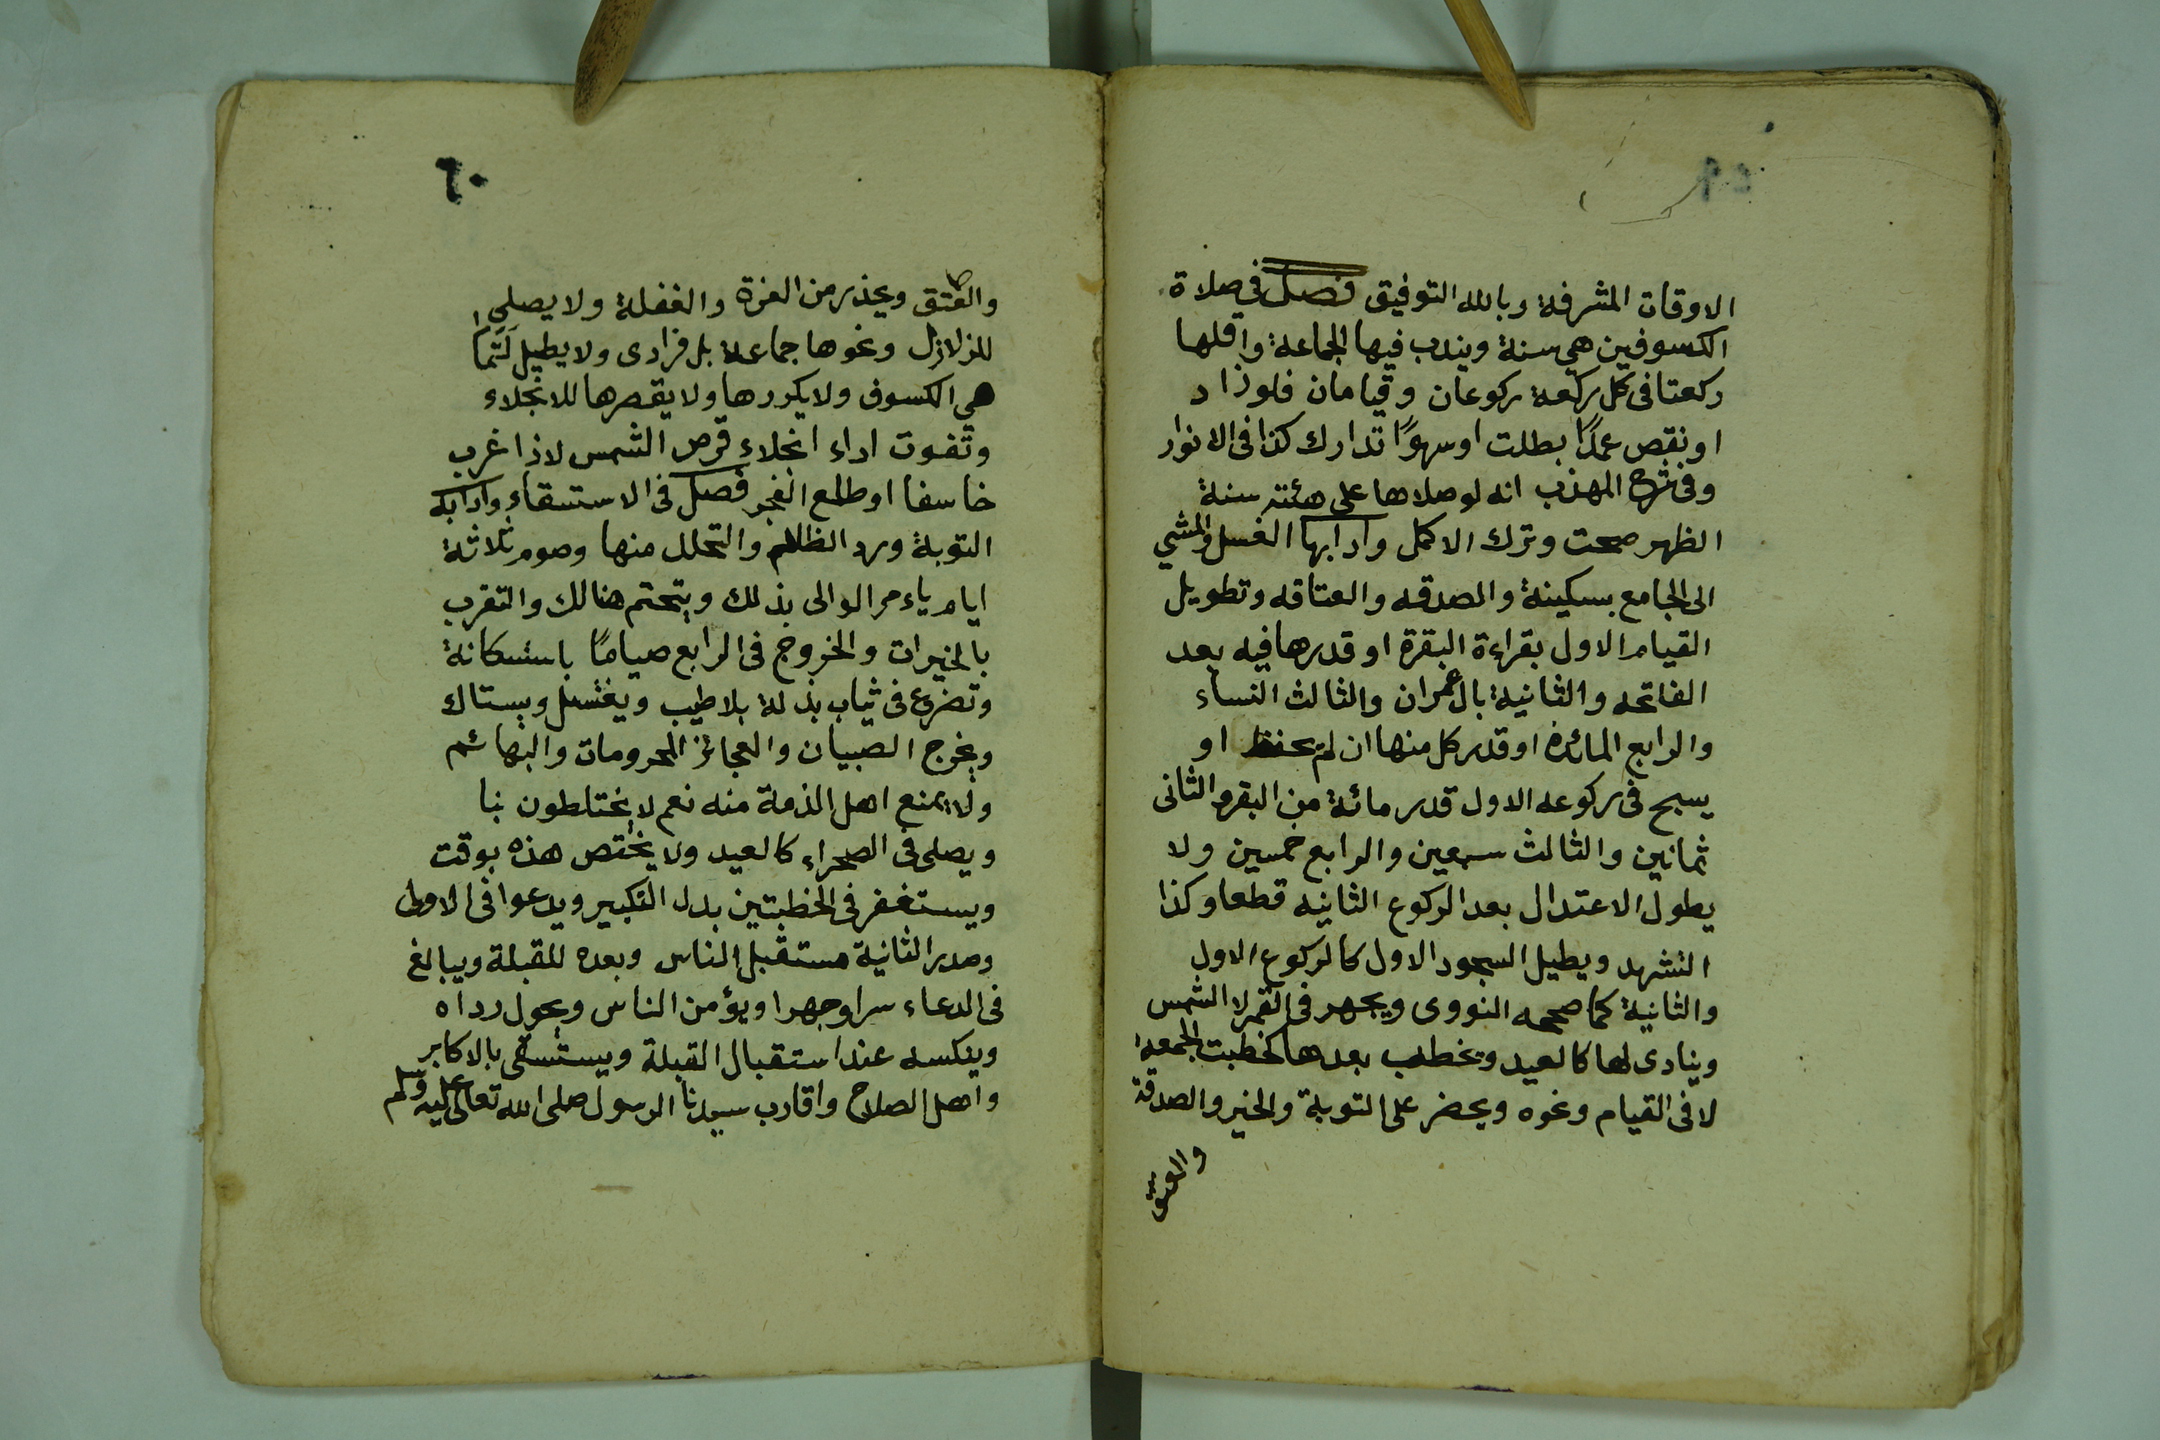 ٥٩
الاوقات المشرفة وبالله التوفيق فصل في صلاة
الكسوفين هي سنة ويندب فيها الجماعة واقلها
ركعتا في كل ركعة ركوعان وقيامان فلو زاد
او نقص عمدًا بطلت او سهوًا تدارك كذا في الانوار
وفي شرح المهذب انه لو صلاها على هئته سنة
الظهر صحت وترك الاكمل وادابها الغسل والمشي
الى الجامع بسكينة والصدقه والعتاقه وتطويل
القيام الاول بقراءة البقرة او قدرها فيه بعد
الفاتحه والثانية بال عمران والثالث النساء
والرابع المائدة او قدر كل منها ان لم يحفظ او
يسبح في ركوعه الاول قدر مائة من البقره والثاني
ثمانين والثالث سبعين والرابع خمسين ولا
يطول الاعتدال بعد الركوع الثانيه قطعا وكذا
التشهد ويطيل السجود الاول كالركوع الاول
والثانية كما صححه النووى ويجهر في القمر لا الشمس
وينادى لها كالعيد ويخطب بعدها كخطبت الجمعه
لا في القيام ونحوه ويحضر على التوبة والخير والصدقة
والعتق
٦٠
والعتق ويحذر من الغرة والغفلة ولا يصلي
للزلازل ونحوها جماعة بل فرادى ولا يطيل
هي الكسوف ولا يكررها ولا يقصرها للانجلاء
وتفوت اداء انجلاء قرص الشمس لاذا غرب
خاسفا او طلع الفجر فصل في الاستسقاء وادابه
التوبة ورد الظلم والتحلل منها وصوم ثلاثة
ايام ياءمر الوالى بذلك ويتحتم هنالك والتقرب
بالخيرات والخروج في الرابع صيامًا باستكانة
وتضرع في ثياب بذلة بلا طيب ويغتسل ويستاك
ويخرج الصبيان والعجائز المحرومات والبهائم
ولا يمنع اهل الذمة منه نعم لا يختلطون بنا
ويصلى في الصحراء كالعيد ولا يختص هذه بوقت
ويستغفر في الخطبتين بدل التكبير ويدعوا في الاولى
وصدر الثانية مستقبل الناس وبعده للقبلة ويبالغ
في الدعاء سرا وجهرا ويؤمن الناس ويحول رداه
وينكسه عند استقبال القبلة ويستسقي بالاكابر
واهل الصلاح واقارب سيدنا الرسول صلى الله تعالى عليه وسلم